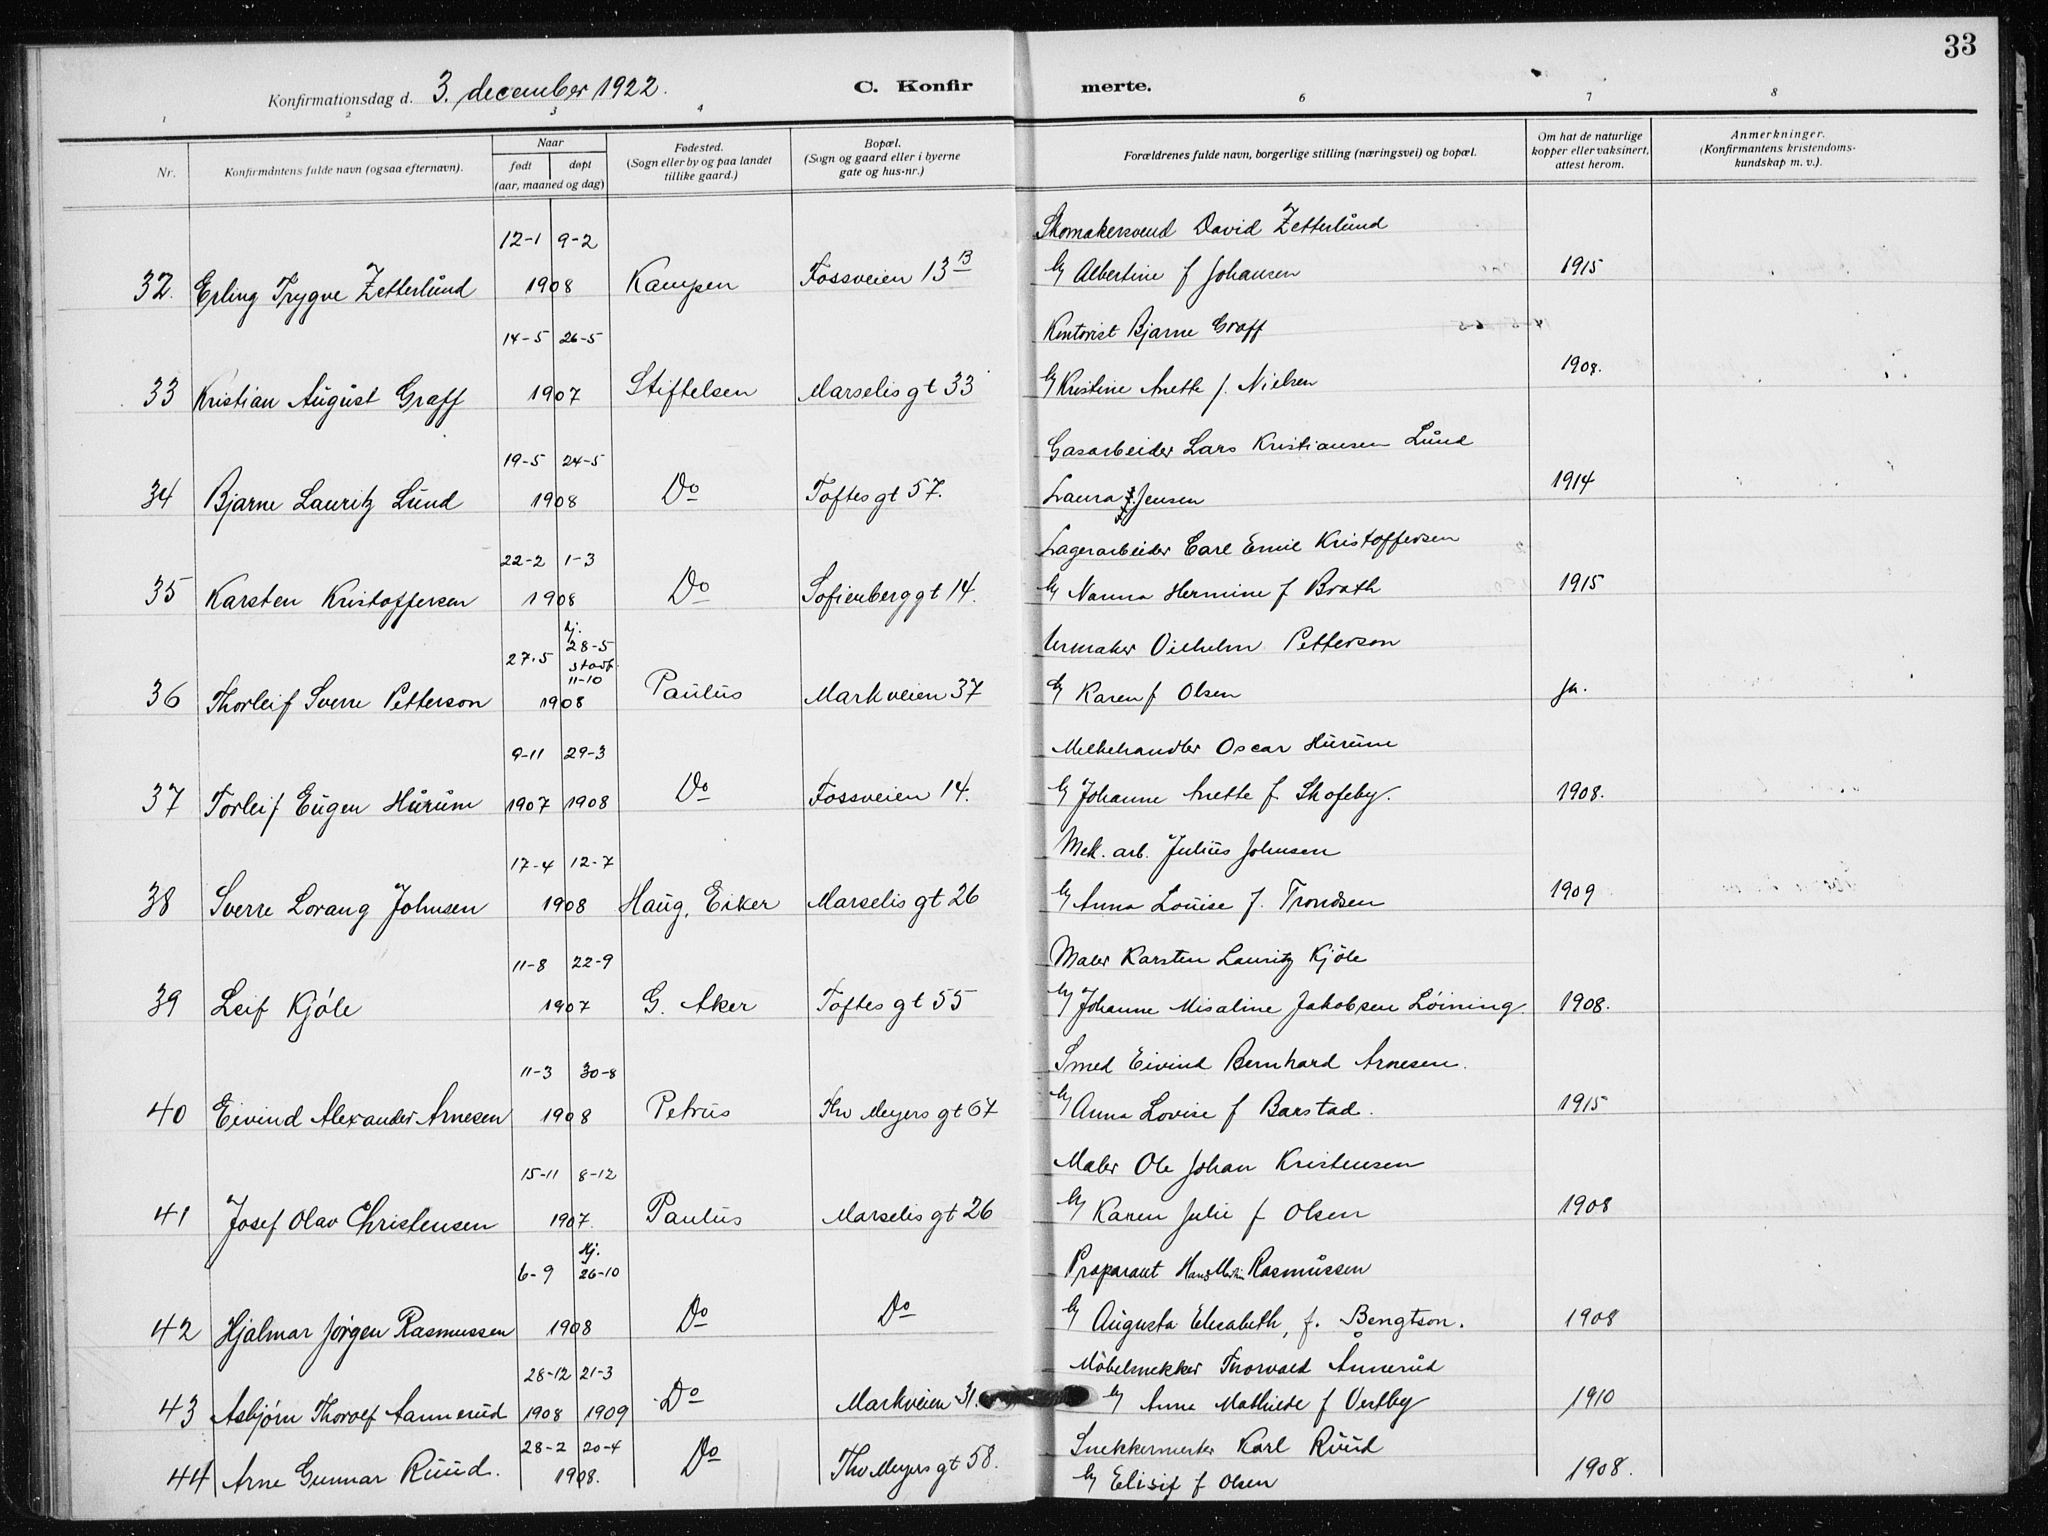 33
Konfirmationsdag d. 3. december 1922. C. Konfirmerte.
1 2 3 4 6 7 8
Nr. Konfirmantens fulde navn (ogsaa efternavn). Naar født døpt (aar, maaned og dag) Fødested. (Sogn eller by og paa landet tillike gaard.) Bopæl. (Sogn og gaard eller i byerne gate og hus-nr.) Forældrenes fulde navn, borgerlige stilling (næringsvei) og bopæl. Om hat de naturlige kopper eller vaksinert, attest herom. Anmerkninger. (Konfirmantens kristendomskundskap m. v.).
12-1 9-2 Skomakersvend David Zetterlund
32. Erling Trygve Zetterlund 1908 Kampen Fossveien 13 B Eg Albertine f Johansen 1915
14-5 26-5 Kontorist Bjarne Graff
33 Kristian August Graff 1907 Stiftelsen Marselis gt 33 Eg Kristine Anette f. Nielsen 1908.
19-5 24-5 Gasarbeider Lars Kristiansen Lund
34 Bjarne Lauritz Lund 1908 Do Toftes gt 57. Laura f. Jensen 1914
22-2 1-3 Lagerarbeider Carl Emil Kristoffersen
35 Karsten Kristoffersen 1908 Do Sofienberggt 14. Eg Nanna Hermine f Brath 1915
27-5 hj. 28-5 stadf. 11-10 Urmaker Vilhelm Petterson
36 Thorleif Sverre Petterson 1908 Paulus Markveien 37 Eg Karen f Olsen ja.
9-11 29-3 Melkehandler Oscar Hurum
37 Torleif Eugen Hurum 1907 1908 Do Fossveien 14. Eg Johanne Anette f Skofeby. 1908.
17-4 12-7 Mek. arb. Julius Johnsen
38 Sverre Lorang Johnsen 1908 Haug, Eiker Marselis gt 26 Eg Anna Louise f. Trondsen 1909
11-8 22-9 Maler Karsten Lauritz Kjöle
39 Leif Kjöle 1907 G. Aker Toftes gt 55 Eg Johanne Misaline Jakobsen Löining 1908.
11-3 30-8 Smed Eivind Bernhard Arnesen.
40 Eivind Alexander Arnesen 1908 Petrus Thv Meyers gt 67 Eg Anna Lovise f Barstad. 1915
15-11 8-12 Maler Ole Johan Kristensen
41 Josef Olav Christensen 1907. Paulus Marselis gt 26 Eg Karen Julie f Olsen 1908
6-9 Hj. 26-10 Præparant Hans Martin Rasmussen
42 Hjalmar Jörgen Rasmussen 1908 Do Do Eg Augusta Elisabeth, f. Bengtson. 1908
28-12 21-3 Möbelsnekker Thorvald Ånnerud
43 Asbjørn Thorolf Aannerud 1908 1909 Do Markveien 31. Eg Anna Mathilde f Vestby 1910
28-2 20-4 Snekkermester Karl Ruud
44 Arne Gunnar Ruud. 1908. Do Thv Meyers gt 58. Eg Elisif f Olsen 1908.